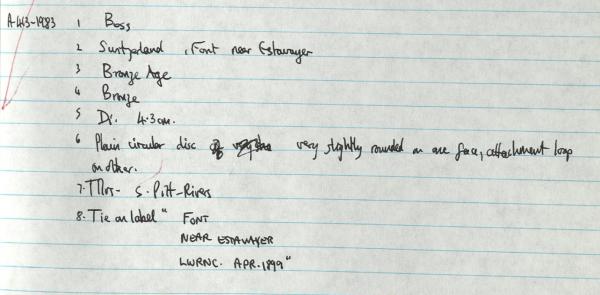 A-443-1983 1 Boss
2 Switzerland, Font near Estavayer
3 Bronze Age
4 Bronze
5 Di. 4.3cm.
6 Plain circular disc very slightly rounded on one face, attachment loop
on other.
7. Mrs- S. Pitt-Rivers
8. Tie on label " FONT
NEAR ESTAVAYER
LWRNC. APR. 1899"